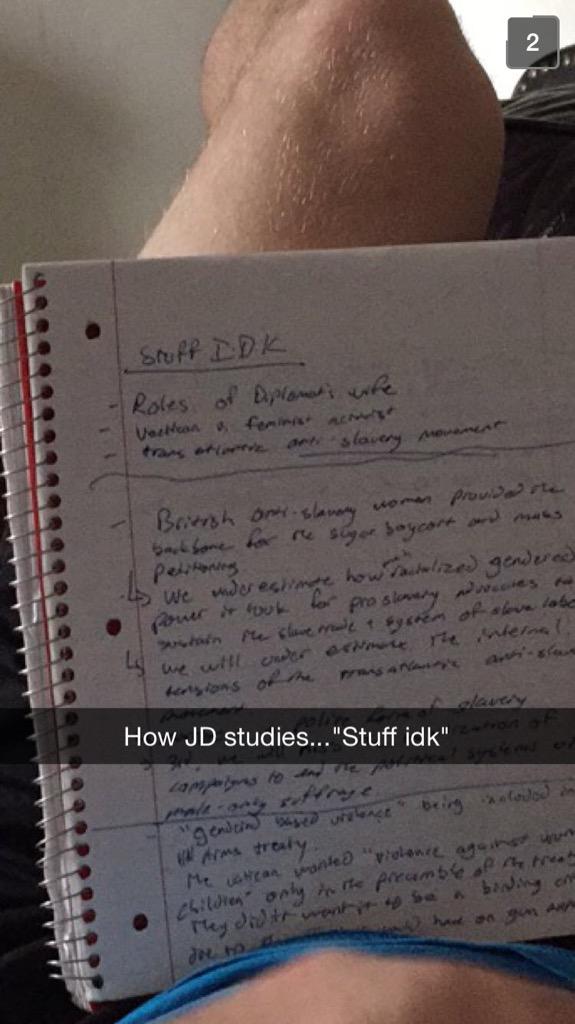 2
Stuff IDK
- Roles of Diplomatic wife
- Vatican v. feminist activist
- trans atlantic anti-slavery movement
- British anti-slavery women provided the
backbone for the sugar boycott and mass
petitioning
↳ we underestimate how racialized gendered
power it took for proslavery advocates to
sustain the slave trade & system of slave labo
↳ we will under estimate the internal
tensions of the transatlantic anti-slav
of slavery
How JD studies..."Stuff idk"
campaigns to end the political systems of
male-only suffrage
"gender based violence" being included in
UN Arms treaty.
The vatican wanted "violence against wom
children" only in the preamble of the treat
They didn't want it to be a binding cri
due to have on gun exp